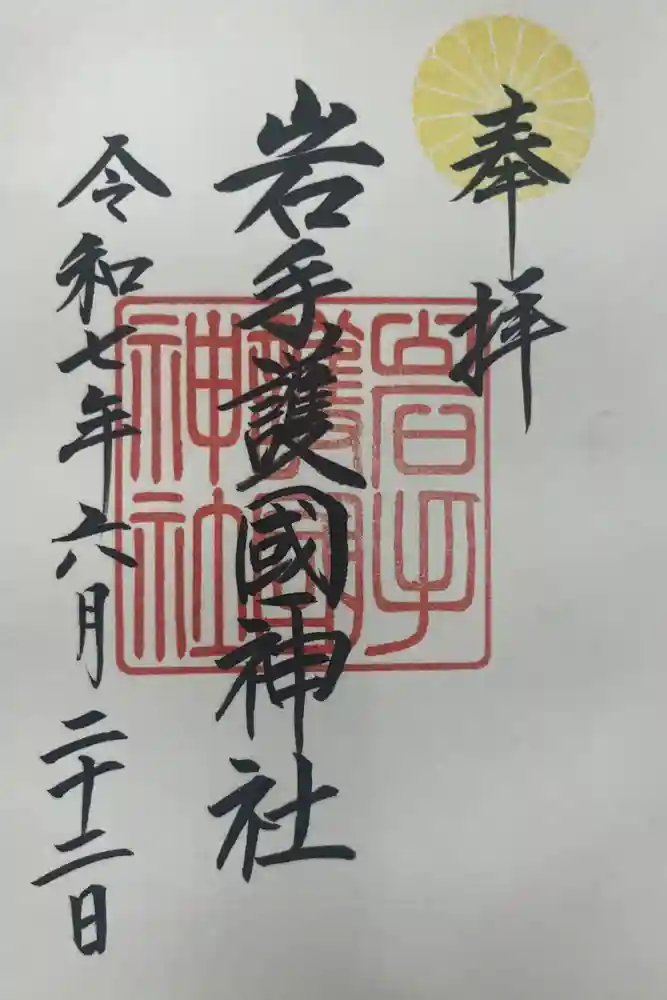 奉拝
岩手護國神社
岩手
護國
神社
令和七年六月二十二日